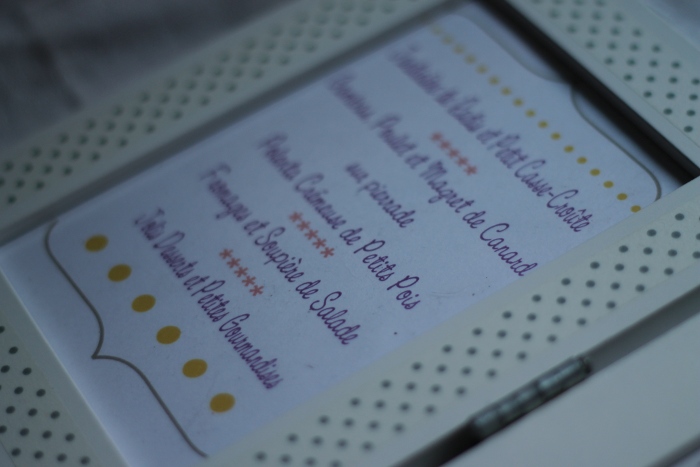 de et Petit Casse-Croûte
*****
Poulet et Magret de Canard
au pierrade
Polenta Crémeuse de Petits Pois
*****
Fromages et Soupière de Salade
*****
Trio Desserts et Petites Gourmandises